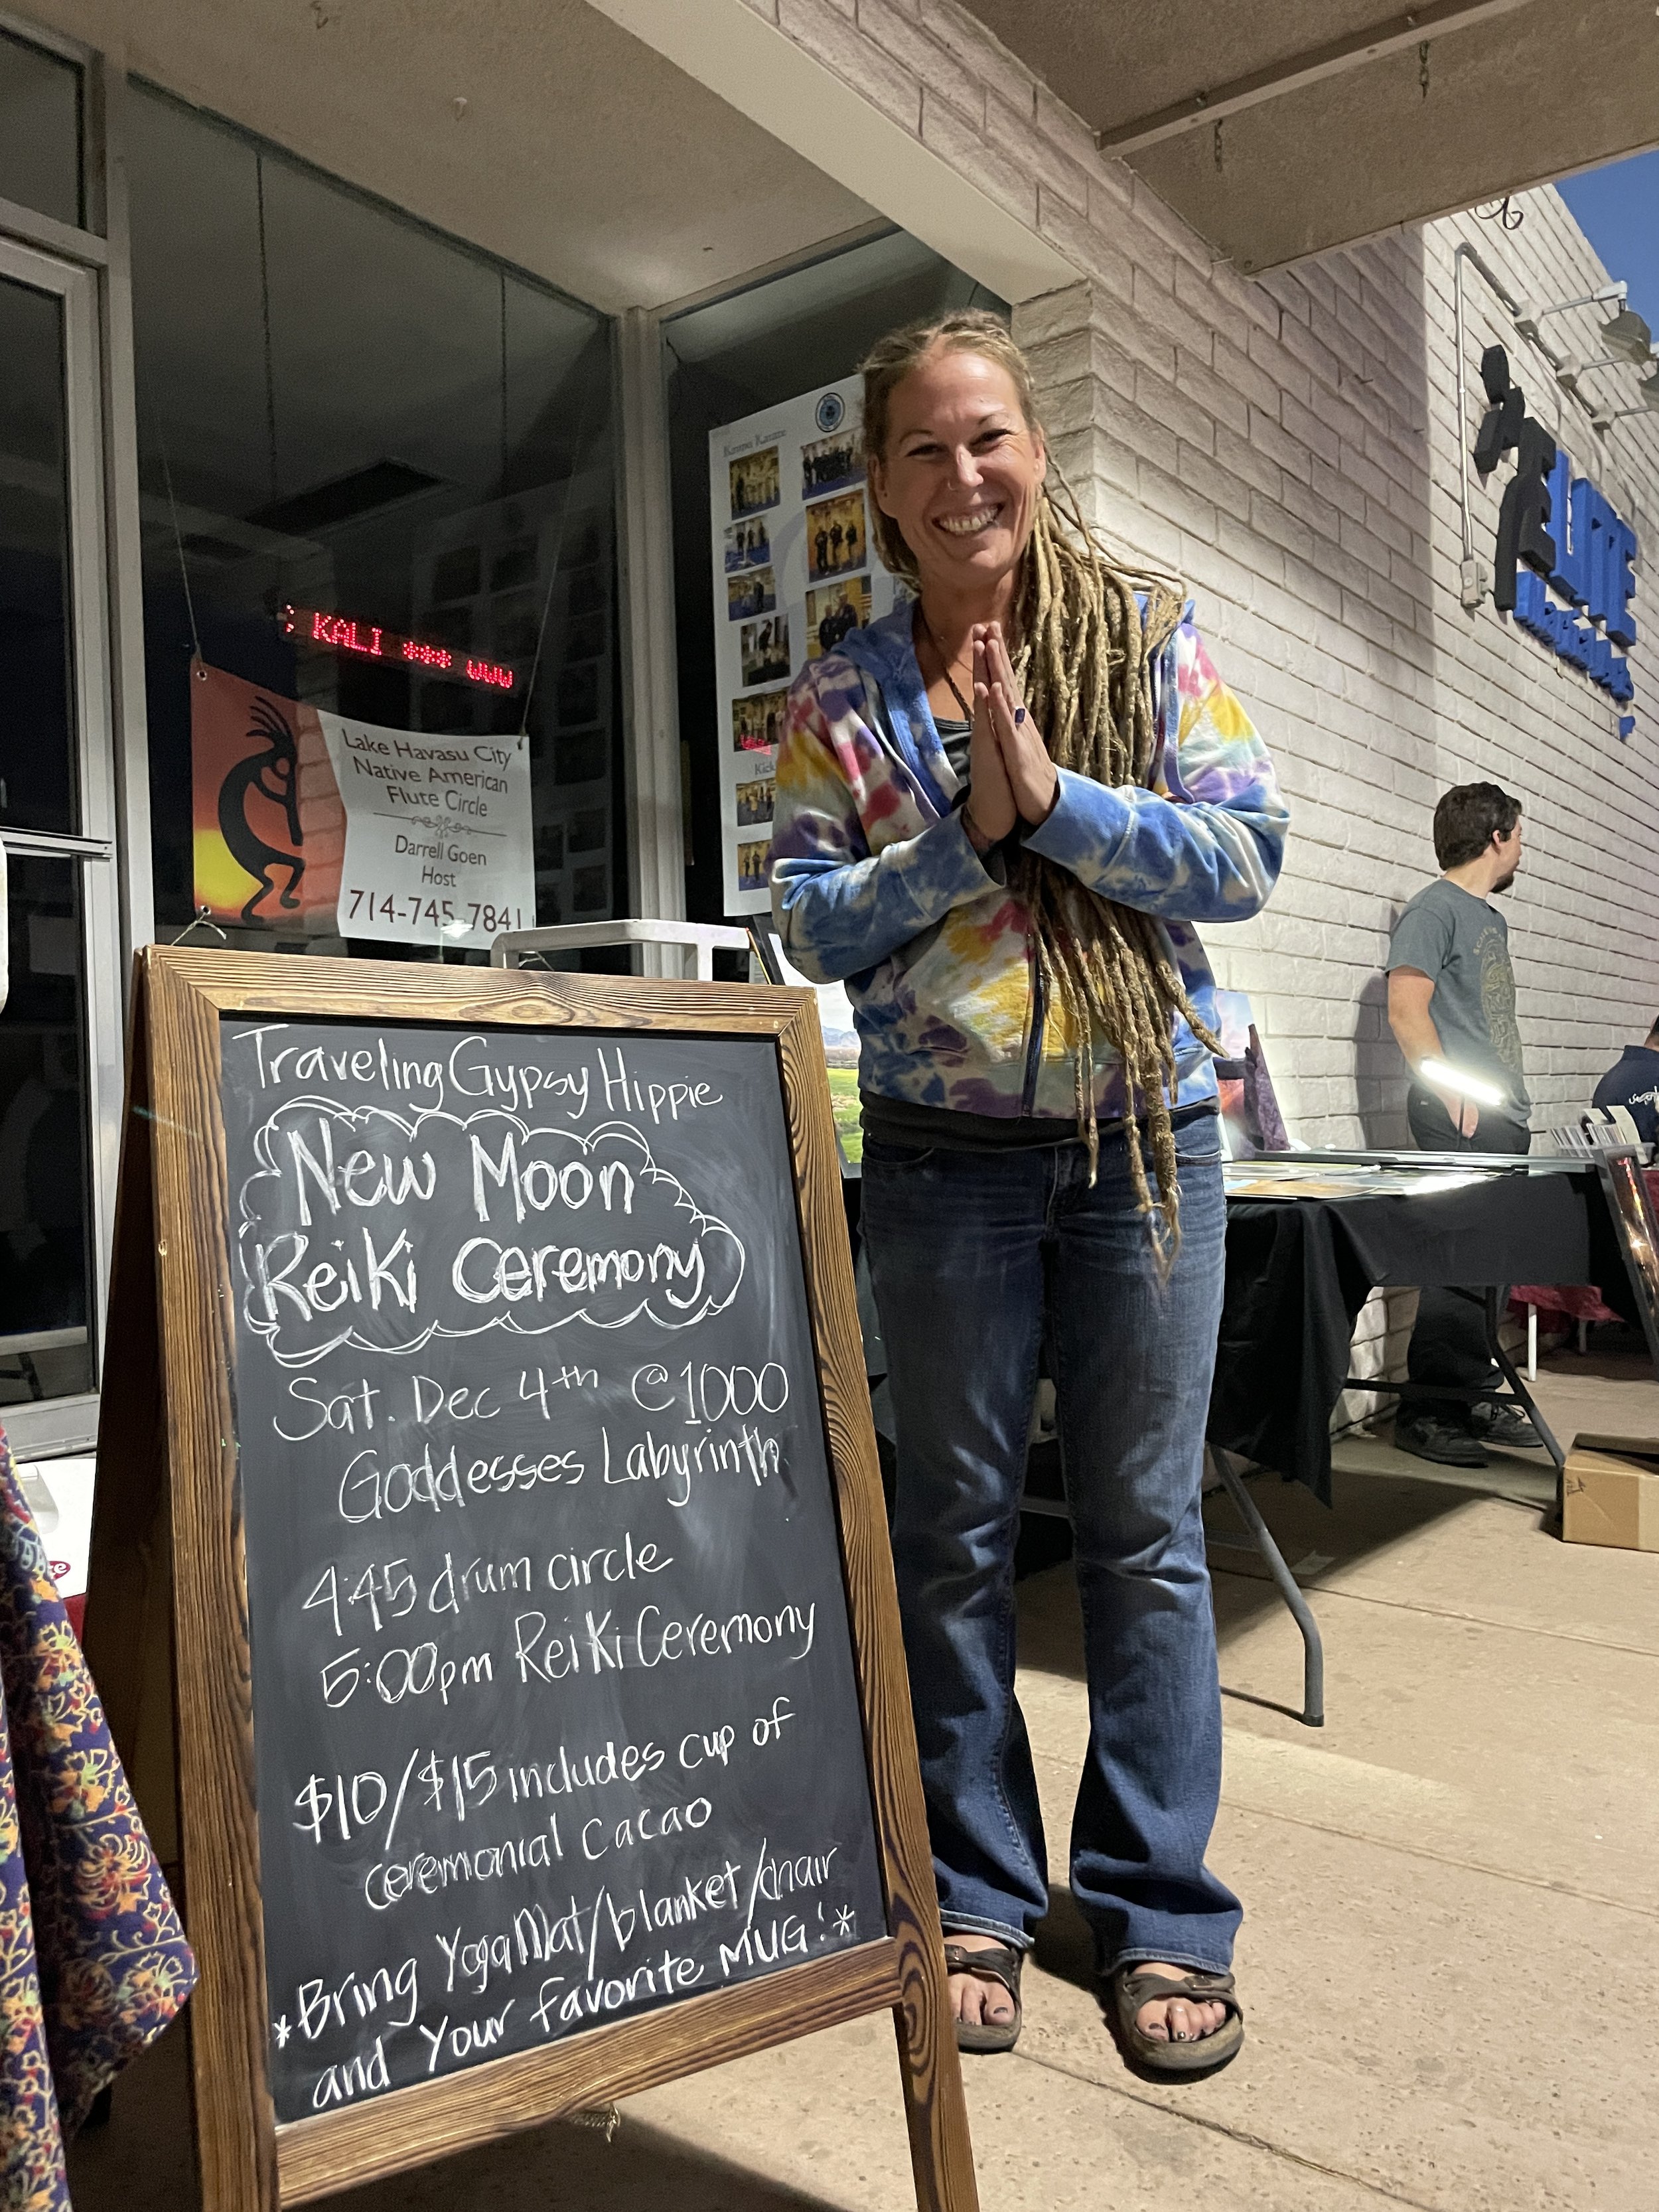 Traveling Gypsy Hippie
New Moon
Reiki Ceremony
Sat. Dec 4th @1000
Goddesses Labyrinth
4:45 drum circle
5:00pm Reiki Ceremony
$10/$15 includes cup of
ceremonial Cacao
*Bring Yoga Mat/blanket/chair
and Your favorite MUG!*
; KALI *** WWW
Lake Havasu City
Native American
Flute Circle
Darrell Goen
Host
714-745-7841
Kenpo Karate
Kick
ELITE